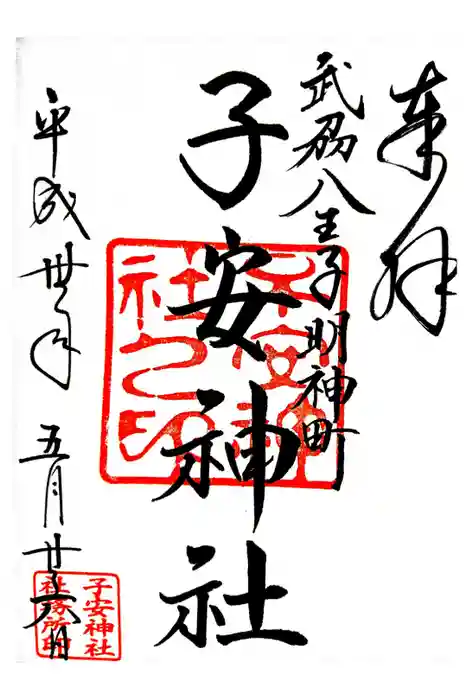 奉拝
武刕八王子明神町
子安神社
子安神社之印
平成丗年五月廿六日
子安神社
社務所印